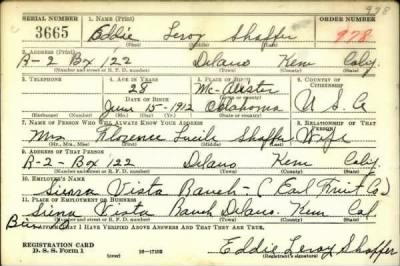 998
SERIAL NUMBER 1. NAME (Print) ORDER NUMBER
3665 Eddie Leroy Shaffer 978
(First) (Middle) (Last)
2. ADDRESS (Print)
R-2 Box 122 Delano Kern Caly.
(Number and street or R. F. D. number) (Town) (County) (State)
3. TELEPHONE 4. AGE IN YEARS 5. PLACE OF BIRTH 6. COUNTRY OF CITIZENSHIP
28 Mc-Alester
DATE OF BIRTH
June 15-1912 Oklahoma U S A
(Exchange) (Number) (Mo.) (Day) (Yr.) (State or country)
7. NAME OF PERSON WHO WILL ALWAYS KNOW YOUR ADDRESS 8. RELATIONSHIP OF THAT PERSON
Mrs Florence Lucile Shaffer Wife
(Mr., Mrs., Miss) (First) (Middle) (Last)
9. ADDRESS OF THAT PERSON
R-2-Box 122 Delano Kern Caly.
(Number and street or R. F. D. number) (Town) (County) (State)
10. EMPLOYER'S NAME
Sierra Vista Ranch - (Earl Fruit Co)
11. PLACE OF EMPLOYMENT OR BUSINESS
Sierra Vista Ranch Delano. Kern Cal
(Number and street or R. F. D. number) (Town) (County) (State)
THAT I HAVE VERIFIED ABOVE ANSWERS AND THAT THEY ARE TRUE.
REGISTRATION CARD
D. S. S. Form 1 16-17105 Eddie Leroy Shaffer